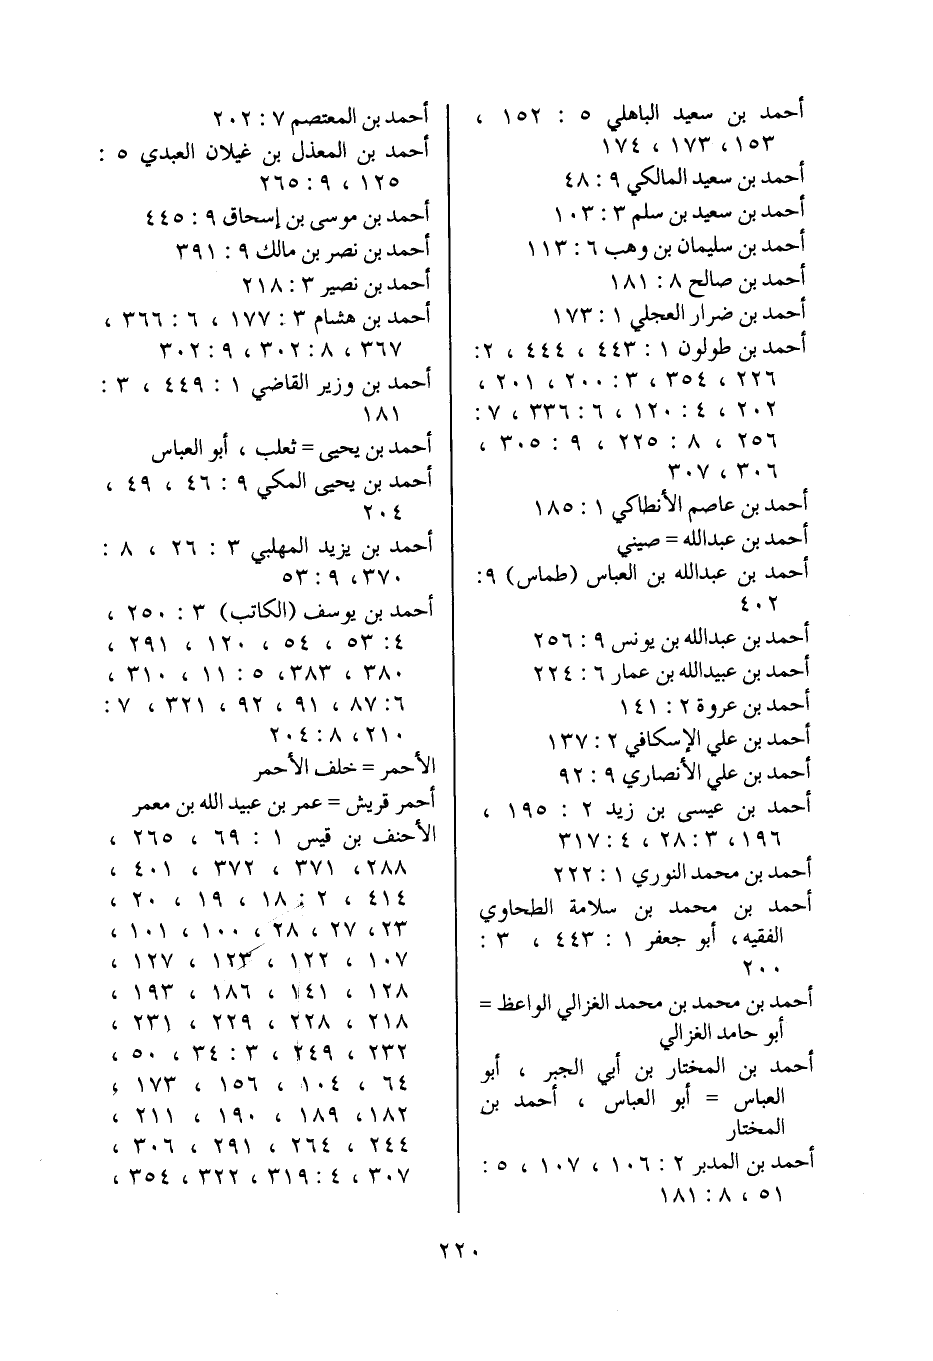 أحمد بن سعيد الباهلي ٥ : ١٥٢ ،
١٥٣ ، ١٧٣ ، ١٧٤
أحمد بن سعيد المالكي ٩ : ٤٨
أحمد بن سعيد بن سلم ٣ : ١٠٣
أحمد بن سليمان بن وهب ٦ : ١١٣
أحمد بن صالح ٨ : ١٨١
أحمد بن ضرار العجلي ١ : ١٧٣
أحمد بن طولون ١ : ٤٤٣ ، ٤٤٤ ، ٢:
٢٢٦ ، ٣٥٤ ، ٣ : ٢٠٠ ، ٢٠١ ،
٢٠٢ ، ٤ : ١٢٠ ، ٦ : ٣٣٦ ، ٧ :
٢٥٦ ، ٨ : ٢٢٥ ، ٩ : ٣٠٥ ،
٣٠٦ ، ٣٠٧
أحمد بن عاصم الأنطاكي ١ : ١٨٥
أحمد بن عبدالله = صيني
أحمد بن عبدالله بن العباس (طماس) ٩:
٤٠٢
أحمد بن عبدالله بن يونس ٩ : ٢٥٦
أحمد بن عبيدالله بن عمار ٦ : ٢٢٤
أحمد بن عروة ٢ : ١٤١
أحمد بن علي الإسكافي ٢ : ١٣٧
أحمد بن علي الأنصاري ٩ : ٩٢
أحمد بن عيسى بن زيد ٢ : ١٩٥ ،
١٩٦ ، ٣ : ٢٨ ، ٤ : ٣١٧
أحمد بن محمد النوري ١ : ٢٢٢
أحمد بن محمد بن سلامة الطحاوي
الفقيه، أبو جعفر ١ : ٤٤٣ ، ٣ :
٢٠٠
أحمد بن محمد بن محمد الغزالي الواعظ =
أبو حامد الغزالي
أحمد بن المختار بن أبي الجبر ، أبو
العباس = أبو العباس ، أحمد بن
المختار
أحمد بن المدبر ٢ : ١٠٦ ، ١٠٧ ، ٥ :
٥١ ، ٨ : ١٨١
أحمد بن المعتصم ٧ : ٢٠٢
أحمد بن المعذل بن غيلان العبدي ٥ :
١٢٥ ، ٩ : ٢٦٥
أحمد بن موسى بن إسحاق ٩ : ٤٤٥
أحمد بن نصر بن مالك ٩ : ٣٩١
أحمد بن نصير ٣ : ٢١٨
أحمد بن هشام ٣ : ١٧٧ ، ٦ : ٣٦٦ ،
٣٦٧ ، ٨ : ٣٠٢ ، ٩ : ٣٠٢
أحمد بن وزير القاضي ١ : ٤٤٩ ، ٣ :
١٨١
أحمد بن يحيى = ثعلب ، أبو العباس
أحمد بن يحيى المكي ٩ : ٤٦ ، ٤٩ ،
٢٠٤
أحمد بن يزيد المهلبي ٣ : ٢٦ ، ٨ :
٣٧٠ ، ٩ : ٥٣
أحمد بن يوسف (الكاتب) ٣ : ٢٥٠ ،
٤ : ٥٣ ، ٥٤ ، ١٢٠ ، ٢٩١ ،
٣٨٠ ، ٣٨٣ ، ٥ : ١١ ، ٣١٠ ،
٦ : ٨٧ ، ٩١ ، ٩٢ ، ٣٢١ ، ٧ :
٢١٠ ، ٨ : ٢٠٤
الأحمر = خلف الأحمر
أحمر قريش = عمر بن عبيد الله بن معمر
الأحنف بن قيس ١ : ٦٩ ، ٢٦٥ ،
٢٨٨ ، ٣٧١ ، ٣٧٢ ، ٤٠١ ،
٤١٤ ، ٢ : ١٨ ، ١٩ ، ٢٠ ،
٢٣ ، ٢٧ ، ٢٨ ، ١٠٠ ، ١٠١ ،
١٠٧ ، ١٢٢ ، ١٢٣ ، ١٢٧ ،
١٢٨ ، ١٤١ ، ١٨٦ ، ١٩٣ ،
٢١٨ ، ٢٢٨ ، ٢٢٩ ، ٢٣١ ،
٢٣٢ ، ٢٤٩ ، ٣ : ٣٤ ، ٥٠ ،
٦٤ ، ١٠٤ ، ١٥٦ ، ١٧٣ ،
١٨٢ ، ١٨٩ ، ١٩٠ ، ٢١١ ،
٢٤٤ ، ٢٦٤ ، ٢٩١ ، ٣٠٦ ،
٣٠٧ ، ٤ : ٣١٩ ، ٣٢٢ ، ٣٥٤ ،
٢٢٠